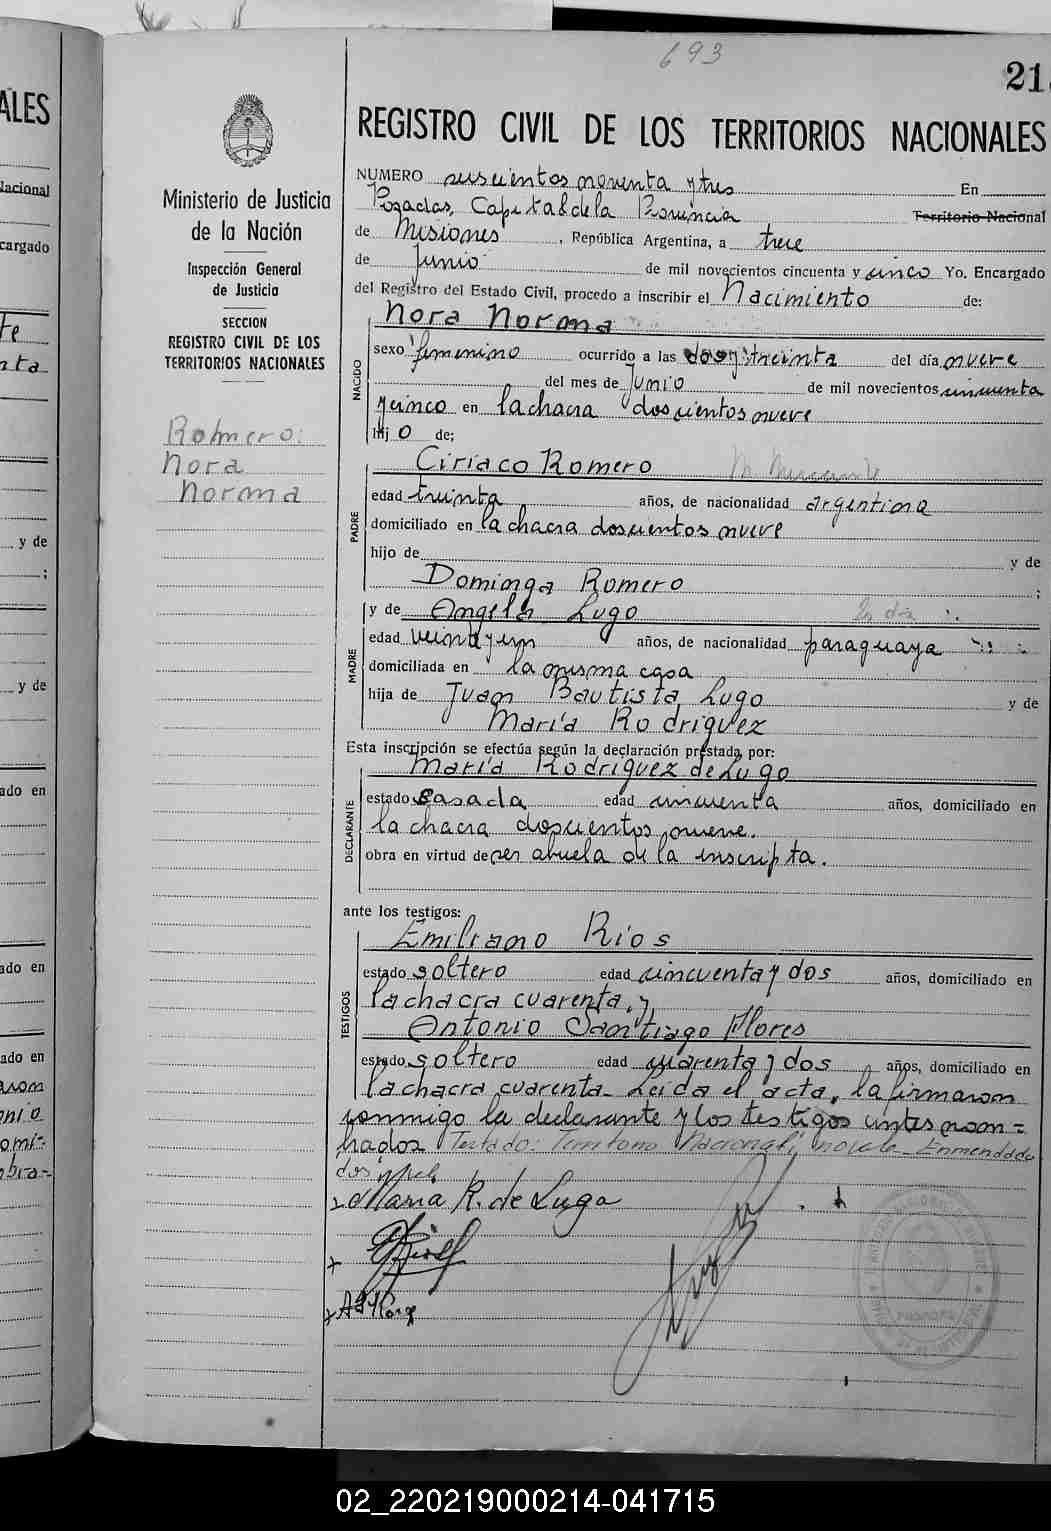 693
21
ALES
REGISTRO CIVIL DE LOS TERRITORIOS NACIONALES
Ministerio de Justicia
de la Nación
Inspección General
de Justicia
SECCION
REGISTRO CIVIL DE LOS
TERRITORIOS NACIONALES
Romero:
Nora
Norma
NUMERO suscientos noventa y tres En
Posadas, Capital de la Provincia Territorio Nacional
de Misiones, República Argentina, a trece
de Junio de mil novecientos cincuenta y cinco Yo, Encargado
del Registro del Estado Civil, procedo a inscribir el Nacimiento de:
Nora Norma
NACIDO
sexo femenino ocurrido a las dos y treinta del día nueve
del mes de Junio de mil novecientos cincuenta
y cinco en la chacra doscientos nueve
hij o de;
PADRE
Ciriaco Romero
edad treinta años, de nacionalidad argentina
domiciliado en la chacra doscientos nueve
hijo de y de
Dominga Romero ;
MADRE
y de Angela Lugo
edad veintiyun años, de nacionalidad paraguaya
domiciliada en la misma casa
hija de Juan Bautista Lugo y de
María Rodriguez
Esta inscripción se efectúa según la declaración prestada por:
DECLARANTE
María Rodriguez de Lugo
estado casada edad cincuenta años, domiciliado en
la chacra doscientos nueve.
obra en virtud de ser abuela de la inscripta.
ante los testigos:
TESTIGOS
Emiliano Rios
estado soltero edad cincuenta y dos años, domiciliado en
la chacra cuarenta, y
Antonio Santiago Flores
estado soltero edad cuarenta y dos años, domiciliado en
la chacra cuarenta. Leída el acta, la firmaron
conmigo la declarante y los testigos antes nom=
brados Testado: Territorio Nacional, no vale. Enmendado
dos y
Maria R. de Lugo
02_220219000214-041715